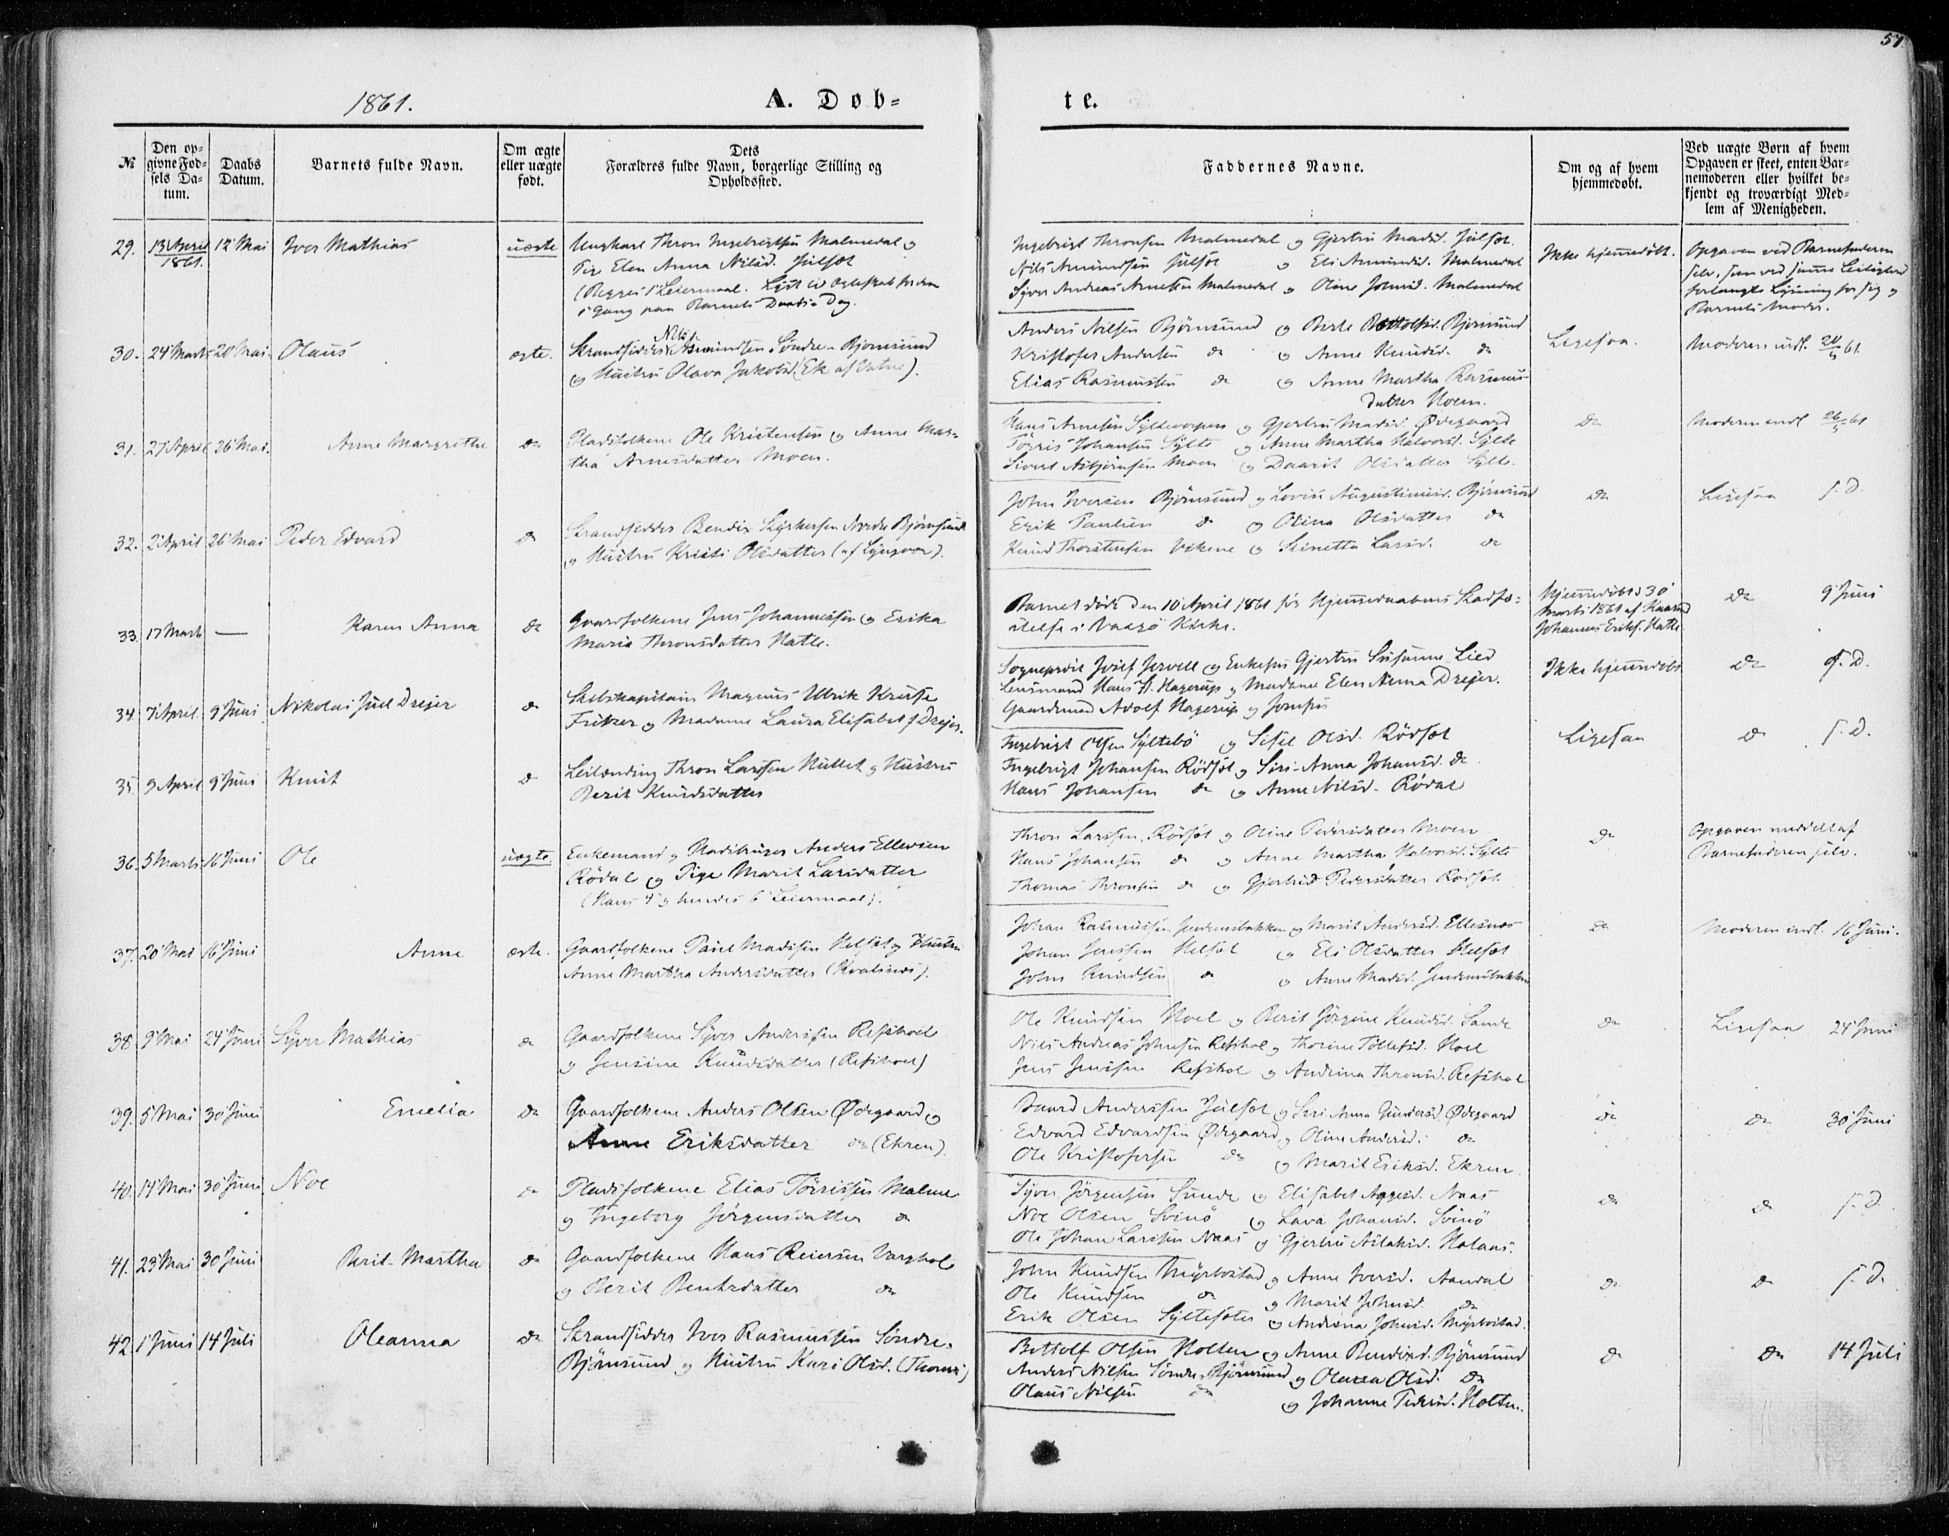 57
1861.
A. Døb-
te.
№
Den op-
givne Fød-
sels Da-
tum.
Daabs
Datum.
Barnets fulde Navn.
Om ægte
eller uægte
født.
Dets
Forældres fulde Navn, borgerlige Stilling og
Opholdssted.
Faddernes Navne.
Om og af hvem
hjemmedøbt.
Ved uægte Børn af hvem
Opgaven er skeet, enten Bar-
nemoderen eller hvilket be-
kjendt og troværdigt Med-
lem af Menigheden.
29. 13 April 1861. 12 Mai Iver Mathias uægte
Ungkarl Thron Ingebrigtsen Malmedal og
Pige Elen Anna Nilsd. Julset
(Begges 1ste Leiermaal.
Barnets Daabs Dag.
Ingebrigt Thronsen Malmedal og Gjertru Madsd. Julset.
Nils Amundsen Julset og Eli Amundsd. Malmedal
Syver Andreas Arnesen Malmedal og Oline Johnsd. Malmedal
Ikke hjemmedøbt.
Opgaven ved Barnefaderen
selv, som ved samme Leilighed
forlangte Lysning for sig og
Barnets Moder.
30. 24 Marts 20 Mai. Olaus ægte.
Strandsidder Nils Asmundsen Søndre-Bjørnsund
og Hustru Olava Jakobsd. (Ek af Vatne).
Anders Nilsen Bjørnsund og Berte Bottolfsd. Bjørnsund
Kristofer Andersen do og Anne Knudsd. do
Elias Rasmussen do og Anne Martha Rasmus-
datter Moen.
Ligesaa.
Moderen indl. 20/5 61.
31. 27 April 26 Mai. Anne Margrethe do
Pladsfolkene Ole Kristensen og Anne Mar-
tha Arnesdatter Moen.
Hans Arnesen Syltevorpen og Gjertru Madsd. Ødegaard
Tørris Johansen Sylte og Anne Martha Halvorsd. Sylte
Sivert Asbjørnsen Moen og Daarit Olsdatter Sylte.
do
Moderen indl. 26/5 61
32. 2 April 26 Mai Peder Edvard do
Strandsidder Bendix Nordre Bjørnsund
og Hustru Kristi Olsdatter (af Lyngvær).
John Iversen Bjørnsund og Lovise Augustinusd. Bjørnsund
Erik Paulsen do og Olina Olsdatter do
Knud Thorstensen Vikene og Stinetta Larsd. do
do
Ligesaa s. D.
33. 17 Marts — Karen Anna do
Gaardfolkene Jens Johannessen og Erika
Maria Thronsdatter Hatle.
Barnet døde den 10 April 1861 før Hjemmedaabens Stadfæ-
stelse i Vaagø Kirke.
Hjemmedøbt d 30
Marts 1861 af Kaarmd
Johannes Eriks. Hatle
do 9 Juni
34. 7 April. 9 Juni. Nikolai Juel Drejer do
Skibskapitain Magnus Ulrik Kruse
Fritzer og Madame Laura Elisabet f. Drejer.
Sogneprest Josef Jervell og Enkefru Gjertru Susanne Lied
Lensmand Hans H. Hagerup og Madame Elen Anna Drejer.
Gaardmand Adolf Hagerup og Jomfru
Ikke hjemmedøbt
do s. D.
35. 9 April 9 Juni Knut do
Leilending Thron Larssen Hullet og Hustru
Berit Knudsdatter
Ingebrigt Olsen Syltebø og Sisil Olsd. Rødset
Ingebrigt Johansen Rødset og Siri-Anna Johansd. do
Hans Johansen do og Anne Nilsd. Rødal
Ligesaa
do s. D.
36. 5 Marts. 16 Juni Ole uægte.
Enkemand og Pladshuser Anders Ellevsen
Rødal og Pige Marit Larsdatter
(Hans 4 og hendes 6 Leiermaal).
Thron Larssen. Rødset og Oline Pedersdatter Moen
Hans Johansen do og Anne Martha Halvorsd. Sylte
Thomas Thronsen do og Gjertrud Pedersdatter Rødset.
do
Opgaven meddelt af
Barnefaderen selv.
37. 20 Mai 16 Juni Anne ægte.
Gaardfolkene Paul Madssen Helset og Hustru
Anne Martha Andersdatter (Kvalsnes).
Johan Rasmussen Jendemsbakken og Marit Andersd. Ellesnes
Johan Jenssen Helset og Eli Olsdatter Helset
John Knudsen do og Anne Madsd. Jendemsbakken
do
Moderen indl. 16 Juni.
38. 9 Mai 24 Juni Syver Mathias do
Gaardfolkene Syver Anderssen Refshoel
og Jensine Knudsdatter (Refshoel)
Ole Knudsen Hoel og Berit Jørgine Knudsd. Sande
Nils Andreas Johnsen Refshol og Thorine Tollefsd. Hoel
Jens Jenssen Refshol og Andrina Thronsd. Refshol
do
Ligesaa 24 Juni
39. 5 Mai 30 Juni Emelia do
Gaardfolkene Anders Olsen Ødegaard og
Anne Eriksdatter do (Ekren).
Baard Anderssen Julset og Siri Anna Gundersd. Ødegaard
Edvard Edvardsen Ødegaard og Oline Andersd. do
Ole Kristofersen do og Marit Eriksd. Ekren
do
do 30 Juni
40. 14 Mai 30 Juni Noe do
Pladsfolkene Elias Tørrissen Malme
og Ingeborg Jørgensdatter do
Syver Jørgensen Sunde og Elisabet Aagesd. Naas
Noe Olsen Svinø og Lava Johansd. Svinø
Ole Johan Larssen Naas og Gjertru Aslaksd. Halaas.
do
do s. D.
41. 23 Mai 30 Juni Berit-Martha do
Gaardfolkene Hans Reiersen Varghol
og Berit Bentsdatter do
John Knudsen Myrbostad og Anne Iversd. Aandal
Ole Knudsen do og Marit Johnsd. do
Erik Olsen Syltesæter og Andrina Johnsd. Myrbostad.
do
do s. D.
42. 1 Juni 14 Juli Oleanna do
Strandsidder Iver Rasmussen Søndre-
Bjørnsund og Hustru Kari Olsd. (Thornes)
Bottolf Olsen Holten og Anne Bendixd. Bjørnsund
Anders Nilsen Søndre-Bjørnsund og Olava Olsd. do
Olaus Nilsen do og Johanne Pedersd. Holten.
do
do 14 Juli